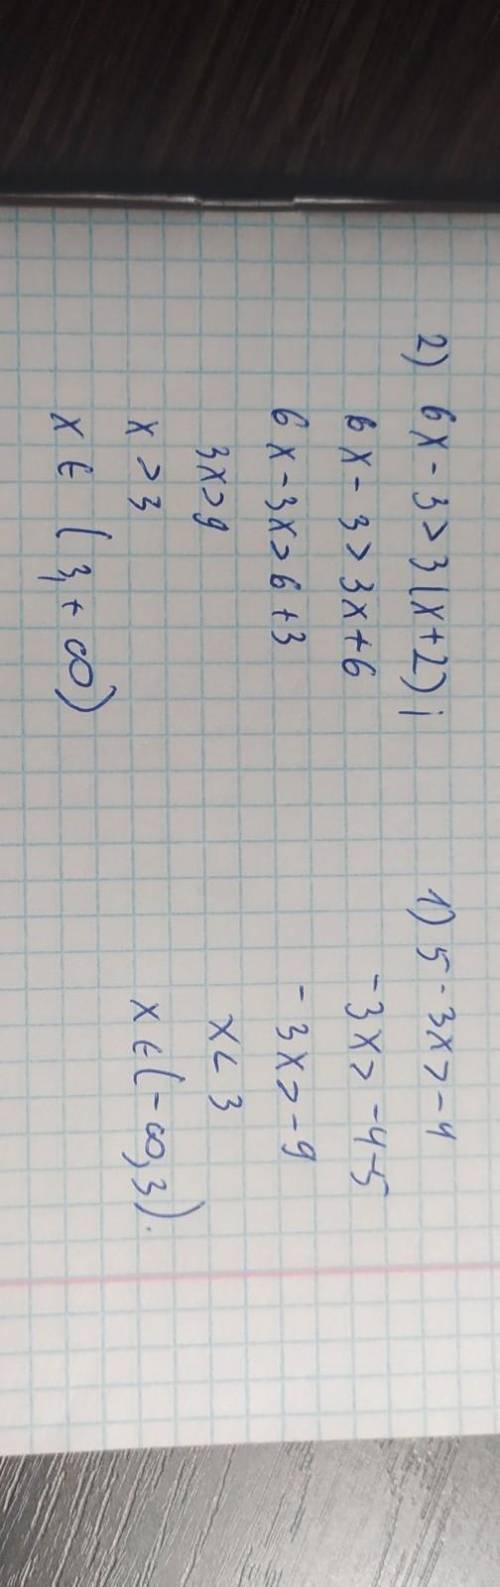 2) 6x - 3 > 3(x+2);
6x - 3 > 3x + 6
6x - 3x > 6 + 3
3x > 9
x > 3
x ∈ (3, + ∞)
1) 5 - 3x > -4
-3x > -4-5
-3x > -9
x < 3
x ∈ (-∞, 3).